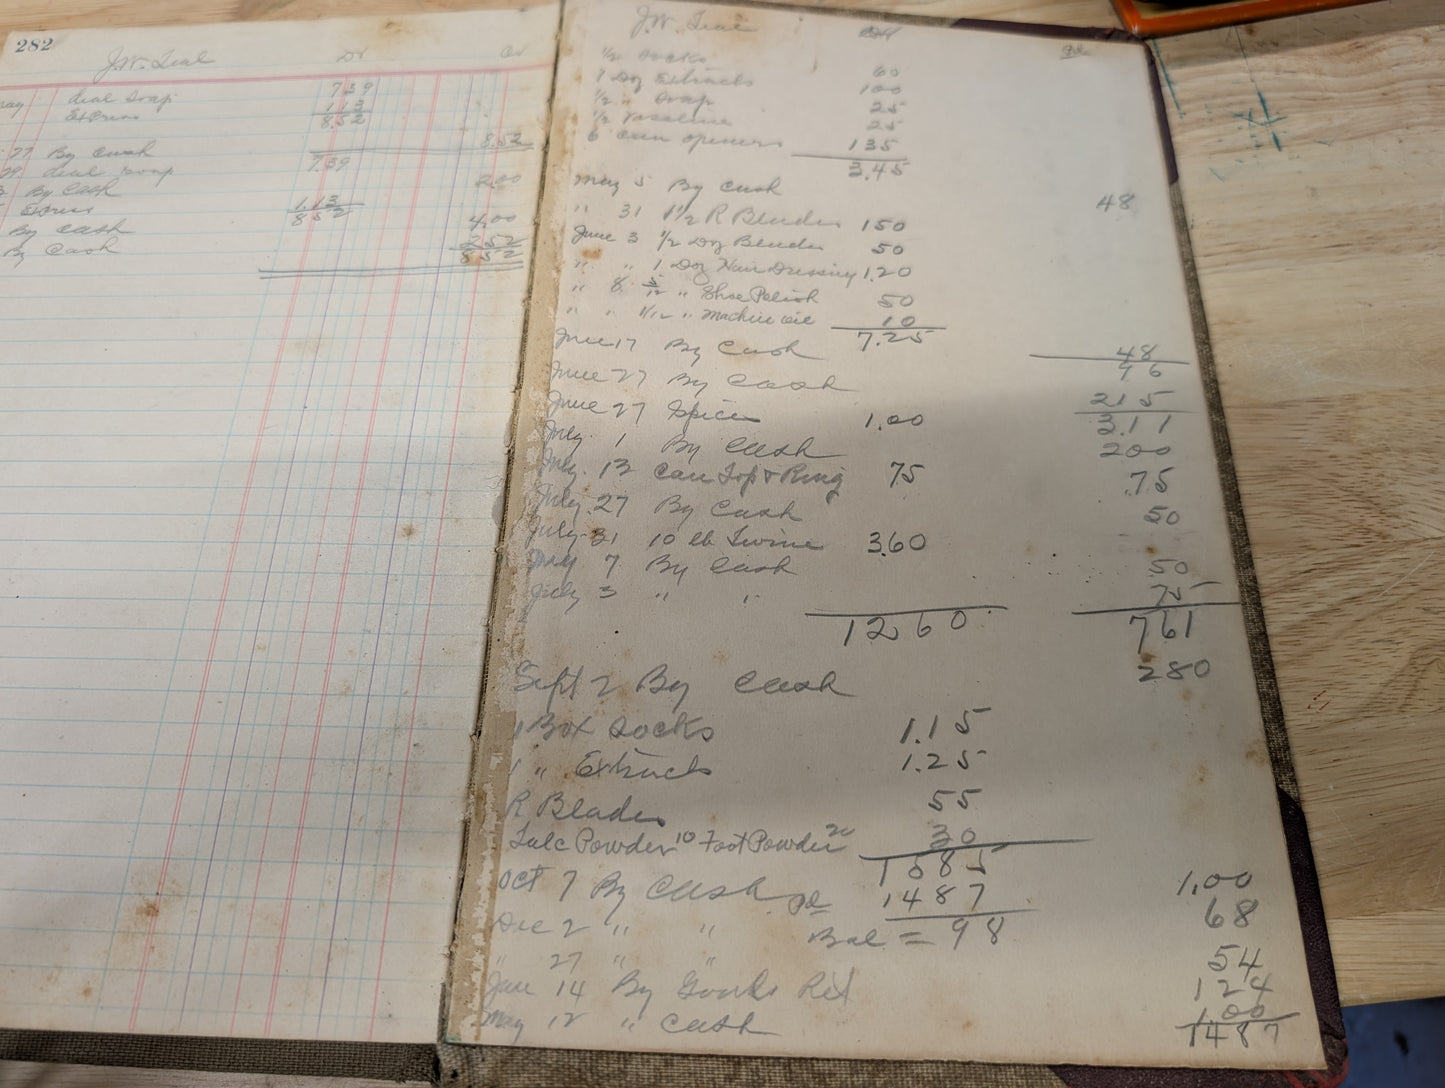 282
J.W. Teal Dr Cr
may Dial Soap 739
Express 113
8.52
27 By Cash 8.52
29 Dial Soap 7.39
3 By Cash 2.00
Express 1.13
852
By Cash 4.00
By Cash 252
852
J.W. Teal Dr
1/2 Socks 60
1 Doz Extracts 100
1/2 " Soap 25
1/2 Vaseline 25
6 can openers 135
3.45
May 5 By Cash 48
" 31 1 1/2 R Blades 150
June 3 1/2 Doz Blades 50
" " 1 Doz Hair Dressing 1.20
" 8 5/12 " Shoe Polish 50
" " 1/12 " Machine oil 10
7.25
June 17 By Cash 48
48
June 27 By Cash 215
June 27 Spices 1.00 3.11
July 1 By Cash 200
July. 13 Can Top & Ring 75 .75
July. 27 By Cash 50
July. 31 10 lb Twine 3.60
July 7 By Cash 50
July 3 " " 75
1260 761
Sept 2 By Cash 280
1 Box Socks 1.15
1 " Extracts 1.25
R Blades 55
Talc Powder 10 Foot Powder 20 30
1585
Oct 7 By Cash 1.00
Pd 1487
Dec 2 " " 68
Bal = 98
" 27 " " 54
Jan 14 By Goods Ret 124
May 12 " Cash 1.00
1487